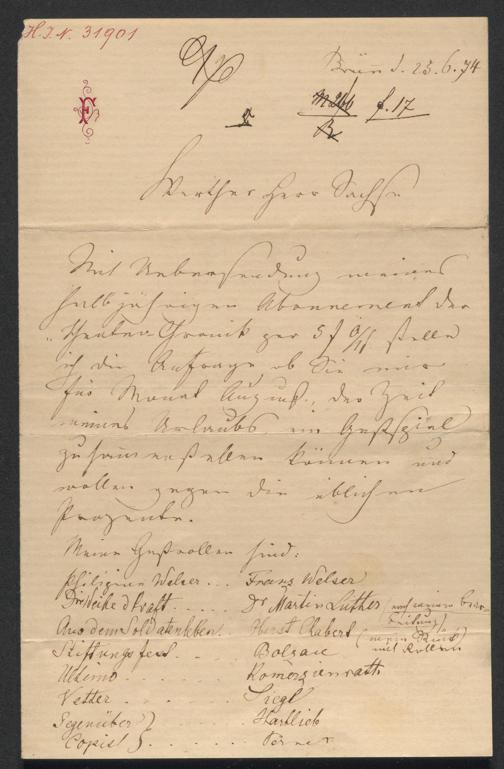 H.I.N. 31901
Brünn d. 23.6.74
f. 17
F
Werther Herr Sachse
Mit Uebersendung meines
halbjährigen Abonnement der
"Theater-Chronik per 5 f stelle
ich die Anfrage ob Sie mir
für Monat August, der Zeit
meines Urlaubs, ein Gastspiel
zusammenstellen können und
wollen gegen die üblichen
Prozente.
Meine Gastrollen sind:
Philippine Welser . . . Franz Welser
Die Weihe d Kraft . . . . . Dr Martin Luther (nach meiner Bear-
beitung)
Aus dem Soldatenleben. . Horst (mein Stück
mit Rollen)
Stiftungsfest . . . . . Bolzau
Ultimo . . . . . . Komerzienrath
Vetter . . . . . . . Siegl
Gegenüber . . . . . . Hartlieb
Copist . . . . . .